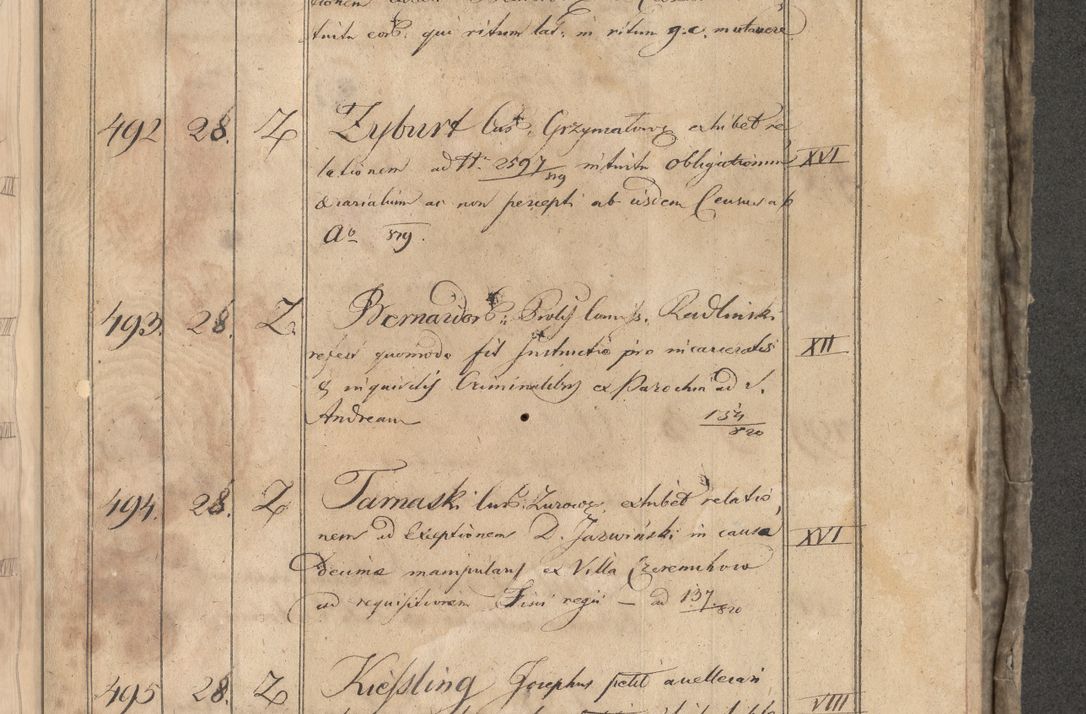 tuitu eor. qui ritum lat. in ritum g.c. mutavere
492 28. Z Zyburt Cus. Grzymałow exhibet re
lationem ad N. 2597/819 intuitu obligationum XVI
Aerarialium ac non percepti ab iisdem Census ap
Ao 819.
493. 28. Z. Bernardor. Radliński
refert quomodo fit Instructio pro incarceratis XII
& inquisitis Criminalibus ex Parochia ad S.
Andream 154/820
494. 28. Z Tarnaski Zurow. exhibet relatio
nem ad Exceptionem D. Jazwiński in causa XVI
Decimae manipularis ex Villa Czeremchow
ad requisitionem Fisci regii — ad 137/820
495 28. Z Kieſsling Josephus petit avellevari VIII